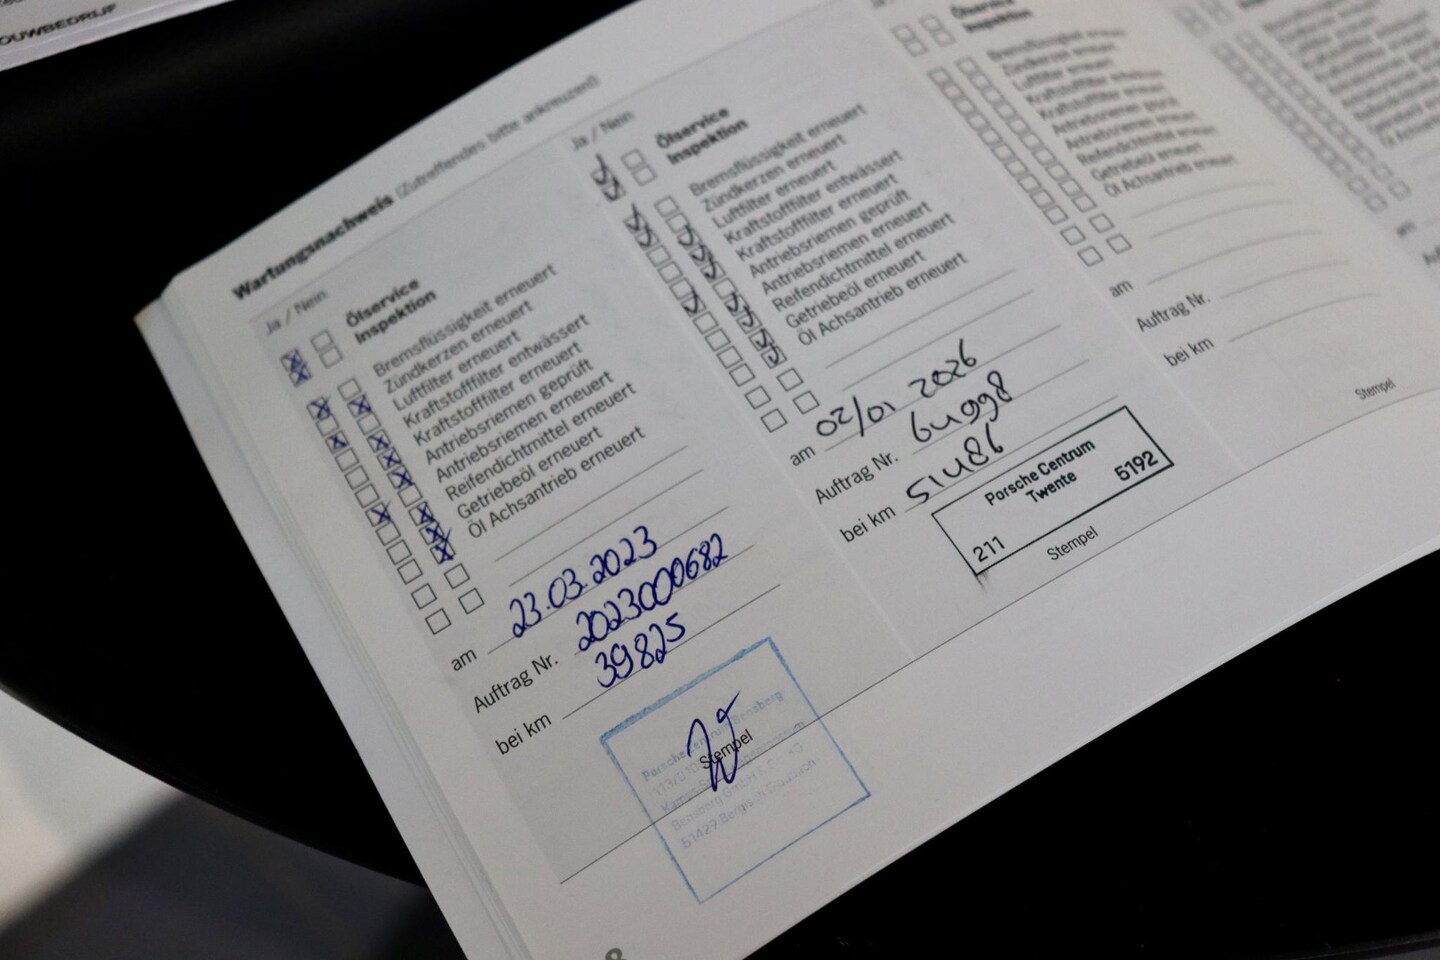 OUWBEDRIJF
Wartungsnachweis (Zutreffendes bitte ankreuzen!)
Ja / Nein
Ölservice
Inspektion
Bremsflüssigkeit erneuert
Zündkerzen erneuert
Luftfilter erneuert
Kraftstofffilter entwässert
Kraftstofffilter erneuert
Antriebsriemen geprüft
Antriebsriemen erneuert
Reifendichtmittel erneuert
Getriebeöl erneuert
Öl Achsantrieb erneuert
am 23.03.2023
Auftrag Nr. 2023000682
bei km 39825
Stempel
Porsche Zentrum Bensberg
Bensberg GmbH
51429 Bergisch Gladbach
Ja / Nein
Ölservice
Inspektion
Bremsflüssigkeit erneuert
Zündkerzen erneuert
Luftfilter erneuert
Kraftstofffilter entwässert
Kraftstofffilter erneuert
Antriebsriemen geprüft
Antriebsriemen erneuert
Reifendichtmittel erneuert
Getriebeöl erneuert
Öl Achsantrieb erneuert
am 02/01 2026
Auftrag Nr. 64998
bei km 51486
Porsche Centrum
Twente
211 5192
Stempel
Ölservice
Inspektion
Bremsflüssigkeit erneuert
Zündkerzen erneuert
Luftfilter erneuert
Kraftstofffilter entwässert
Kraftstofffilter erneuert
Antriebsriemen geprüft
Antriebsriemen erneuert
Reifendichtmittel erneuert
Getriebeöl erneuert
Öl Achsantrieb erneuert
am
Auftrag Nr.
bei km
Stempel